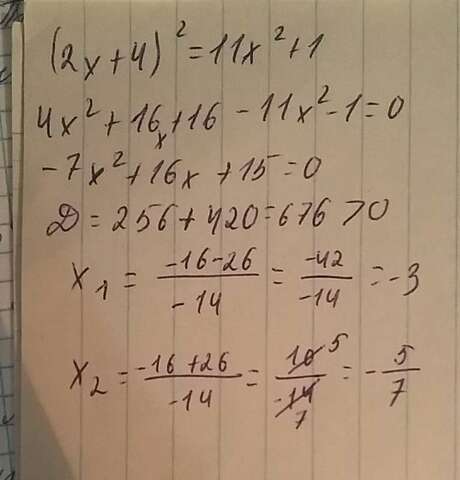 (2x+4)² = 11x² + 1
4x² + 16x + 16 - 11x² - 1 = 0
-7x² + 16x + 15 = 0
D = 256 + 420 = 676 > 0
x₁ = (-16-26)/(-14) = (-42)/(-14) = -3
x₂ = (-16+26)/(-14) = (10 5)/(-14 7) = -5/7